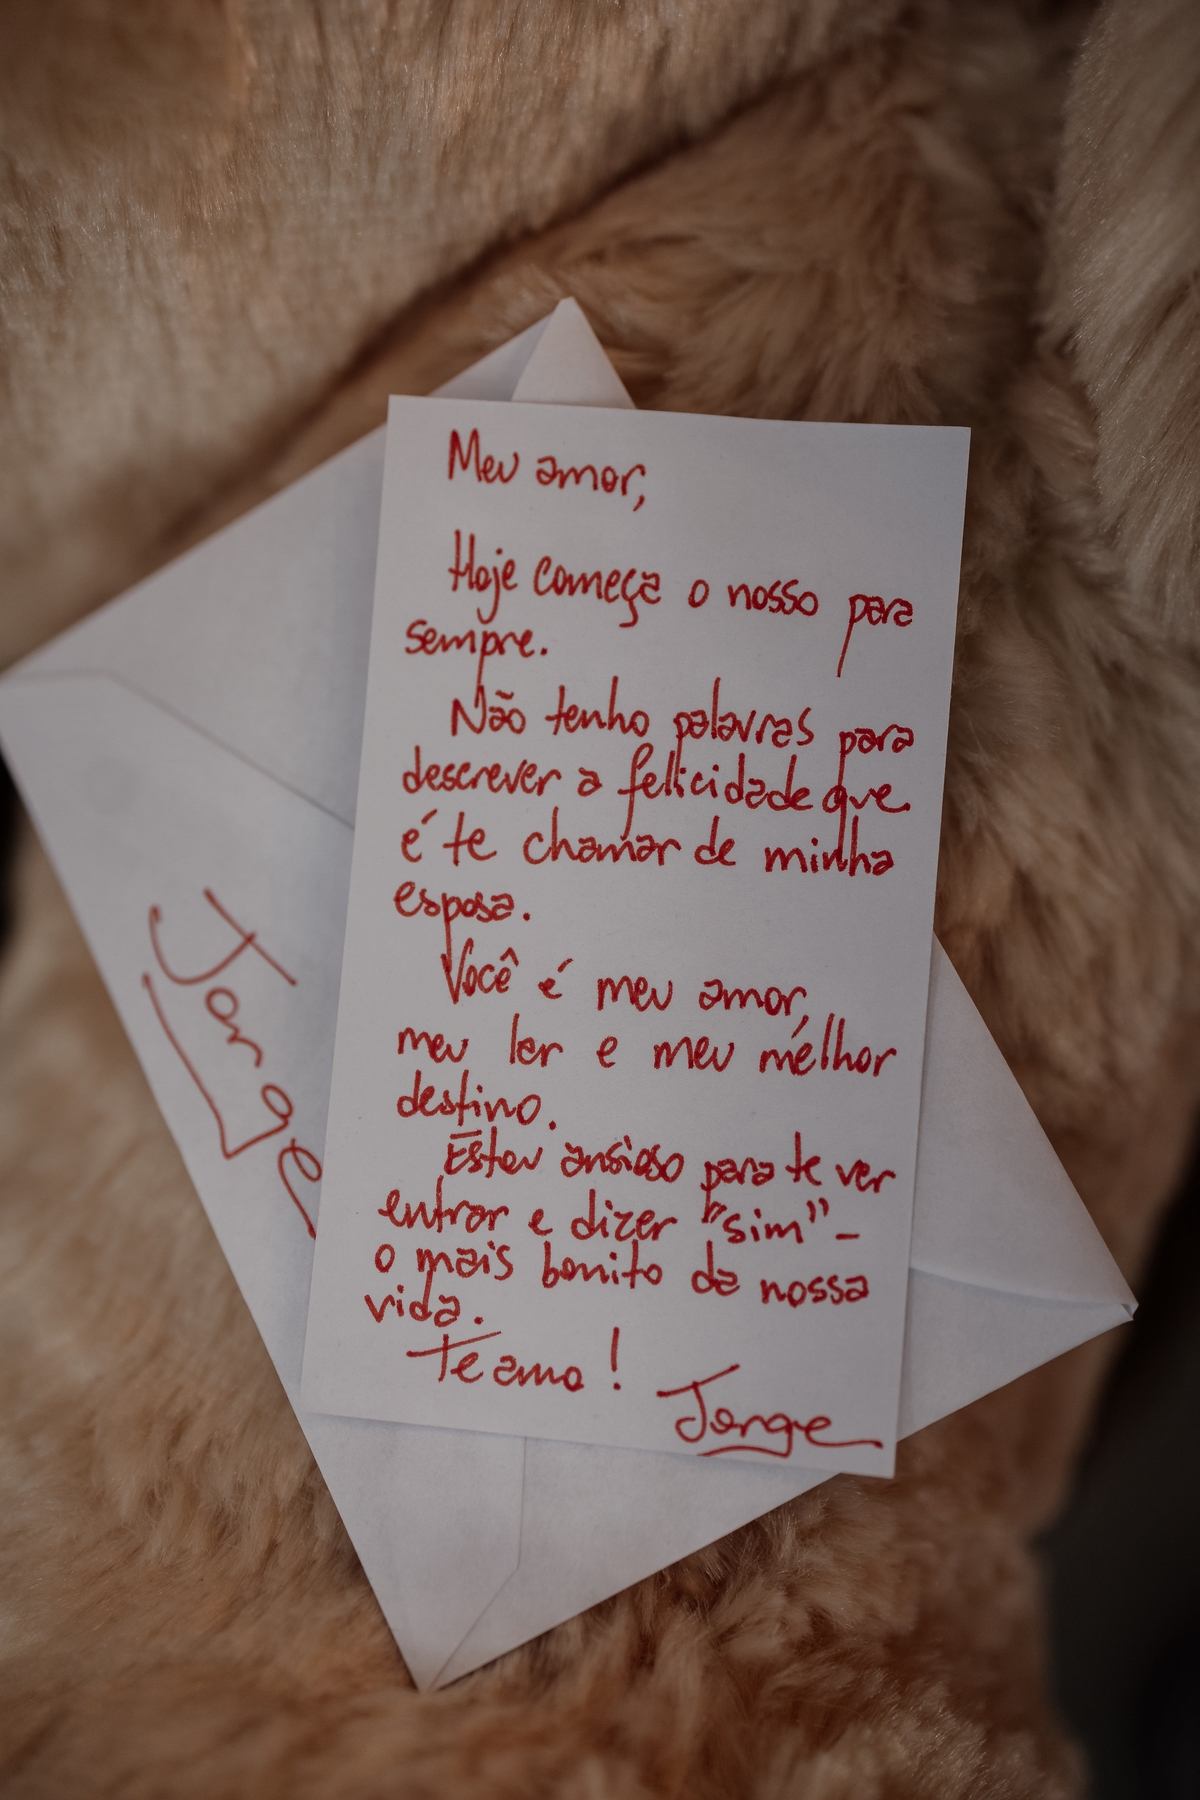 Meu amor,
Hoje começa o nosso para
sempre.
Não tenho palavras para
descrever a felicidade que
é te chamar de minha
esposa.
Você é meu amor,
meu lar e meu melhor
destino.
Estou ansioso para te ver
entrar e dizer "sim" –
o mais bonito da nossa
vida.
Te amo!
Jorge
Jorge